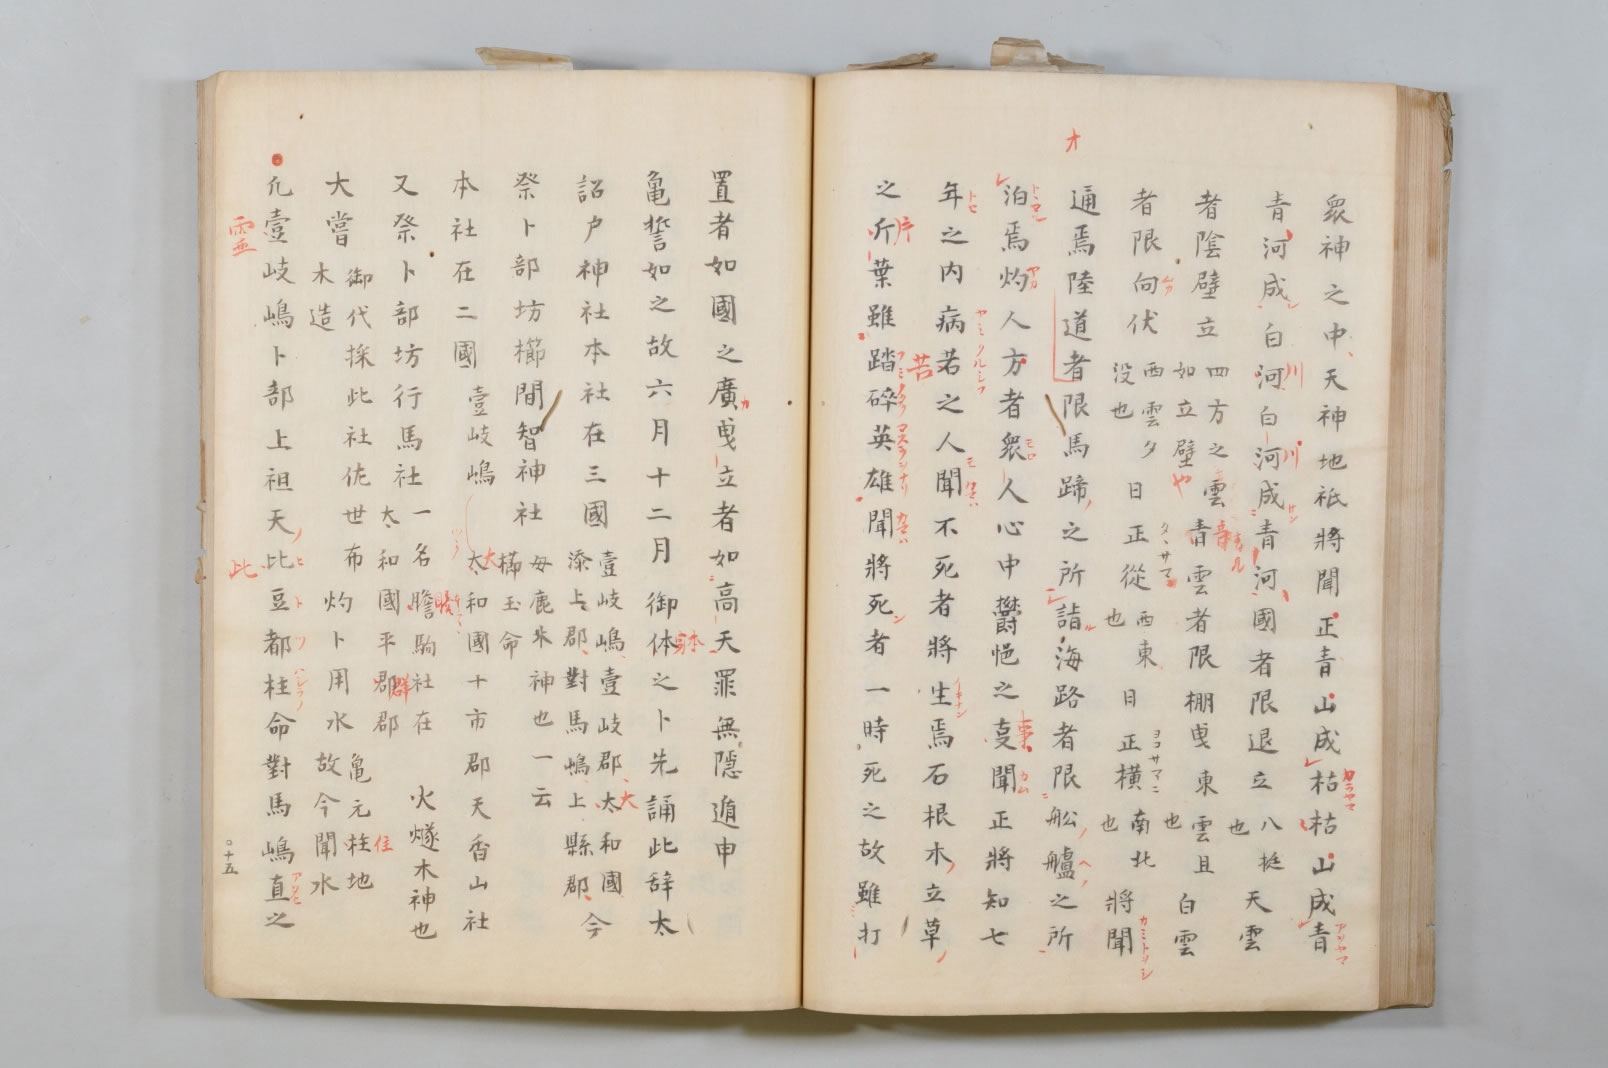 衆神之中、天神地祇將聞正青山成枯枯山成青
青河成白河白河成青河國者限退立八挺也天雲
者陰壁立四方之雲如立壁青雲者限棚曳東雲且也白雲
者限向伏西雲夕没也日正從西東也日正橫南北也將聞
通焉陸道者限馬蹄之所詣海路者限舩艫之所
泊焉灼人方者衆人心中欝悒之㕝聞正將知七
年之内病若之人聞不死者將生焉石根木立草
之斤葉雖踏碎英雄聞將死者一時死之故雖打
置者如國之廣曳立者如高天罪無隱遁申
亀誓如之故六月十二月御体之卜先誦此辞太
詔戸神社本社在三國壹岐嶋壹岐郡太和國添上郡對馬嶋上縣郡今
祭卜部坊櫛間智神社母鹿米神也一云櫛玉命
本社在二國壹岐嶋太和國十市郡天香山社
又祭卜部坊行馬社一名膽駒社在太和國平郡郡火燧木神也
大嘗御代採此社佐世布木造灼卜用水亀元柱地故今聞水
凡壹岐嶋卜部上祖天比豆都柱命對馬嶋直之
十五
オ
川
川
や
苦
本
大
大
群
住
靈
比